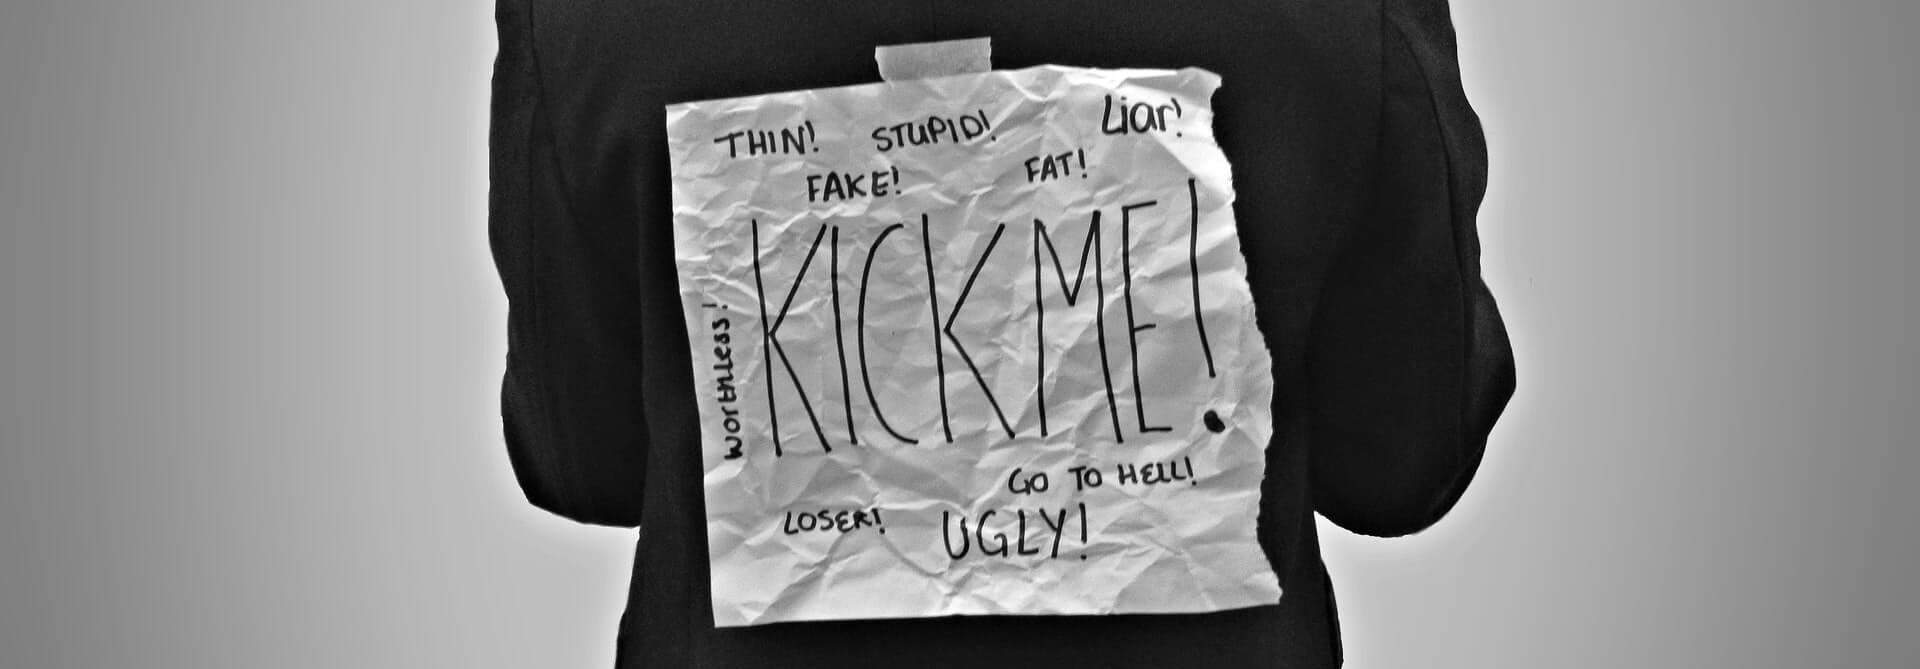 THIN! STUPID! Liar!
FAKE! FAT!
worthless!
KICK ME!
GO TO HELL!
LOSER! UGLY!